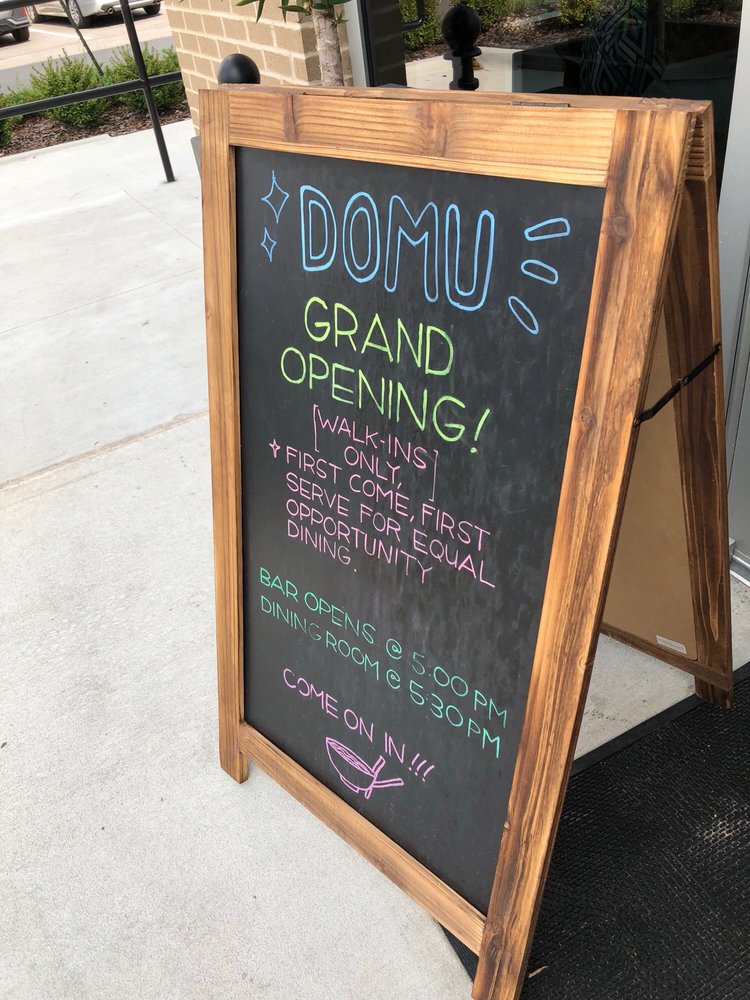 DOMU
GRAND
OPENING!
[WALK-INS
ONLY,]
FIRST COME, FIRST
SERVE FOR EQUAL
OPPORTUNITY
DINING.
BAR OPENS @ 5:00 PM
DINING ROOM @ 5:30 PM
COME ON IN!!!